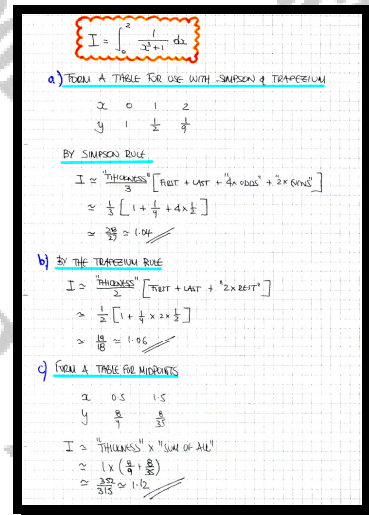 I = ∫₀² 1/(x³+1) dx
a) FORM A TABLE FOR USE WITH SIMPSON & TRAPEZIUM
x 0 1 2
y 1 1/2 1/9
BY SIMPSON RULE
I ≃ "THICKNESS"/3 [FIRST + LAST + "4× ODDS" + "2× EVENS"]
≃ 1/3 [1 + 1/9 + 4×1/2]
≃ 28/27 ≃ 1.04
b) BY THE TRAPEZIUM RULE
I ≃ "THICKNESS"/2 [FIRST + LAST + "2× REST"]
≃ 1/2 [1 + 1/9 + 2×1/2]
≃ 19/18 ≃ 1.06
c) FORM A TABLE FOR MIDPOINTS
x 0.5 1.5
y 8/9 8/35
I ≃ "THICKNESS" × "SUM OF ALL"
≃ 1×(8/9 + 8/35)
≃ 352/315 ≃ 1.12